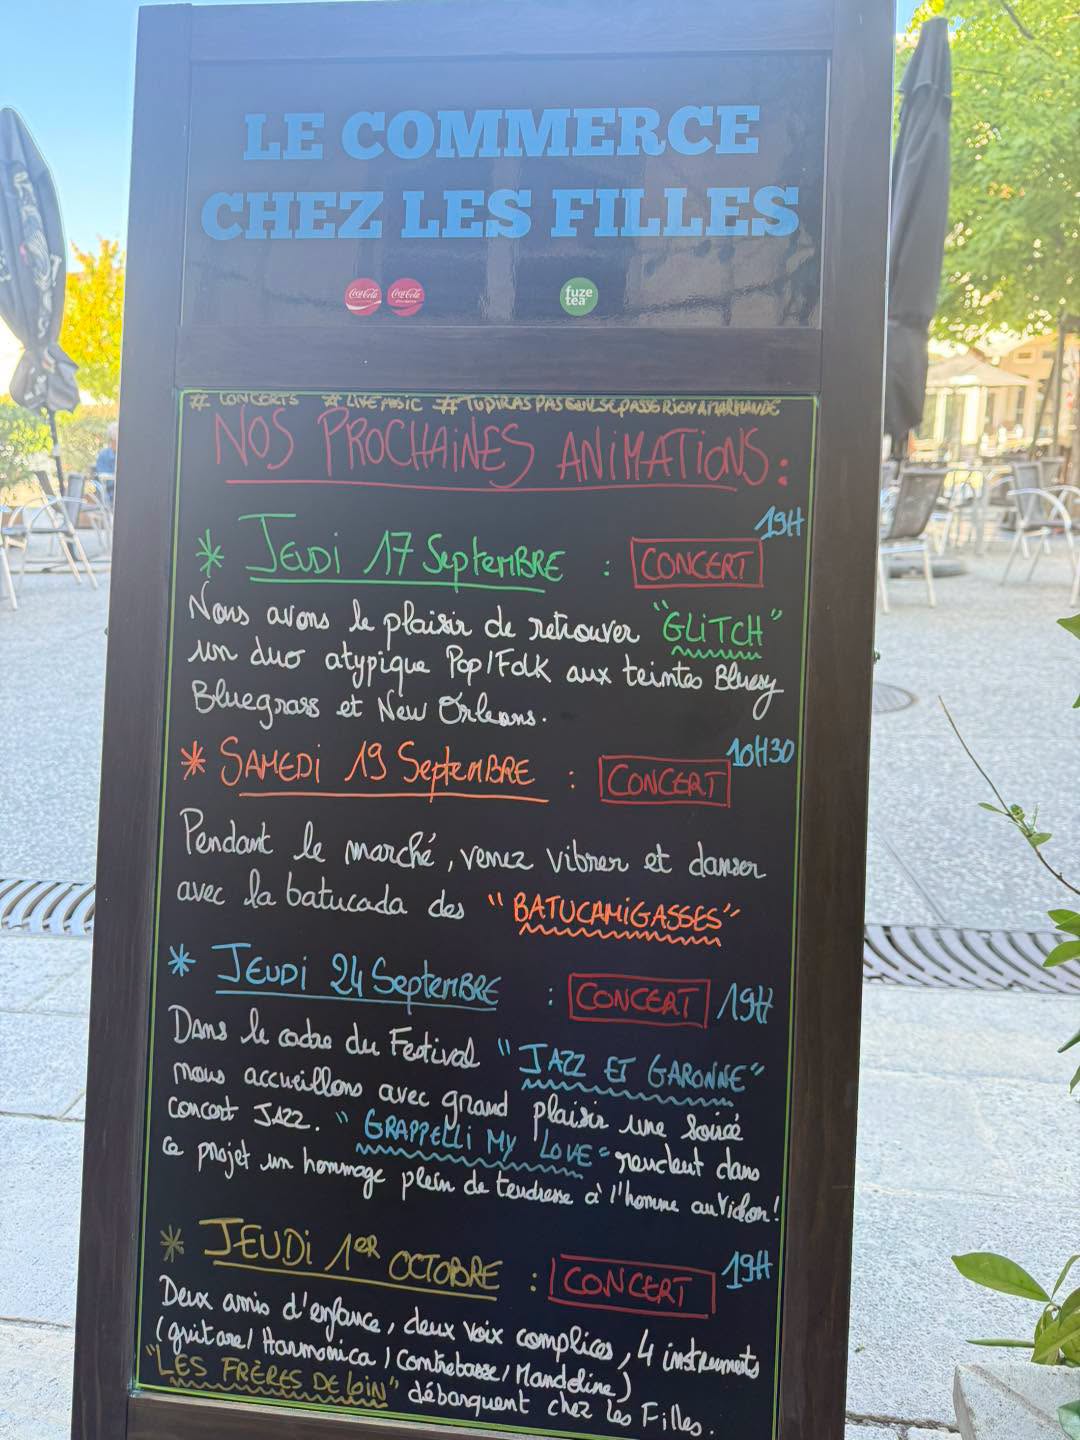 LE COMMERCE
CHEZ LES FILLES
Coca-Cola Coca-Cola fuze tea
# CONCERTS # LIVE MUSIC # TUDIRASPASQUILSEPASSERIENAMARMANDE
NOS PROCHAINES ANIMATIONS :
19H
* JEUDI 17 SEPTEMBRE : CONCERT
Nous avons le plaisir de retrouver "GLITCH"
un duo atypique Pop/Folk aux teintes Bluesy
Bluegrass et New Orleans.
10H30
* SAMEDI 19 SEPTEMBRE : CONCERT
Pendant le marché, venez vibrer et danser
avec la batucada des "BATUCAMIGASSES"
* JEUDI 24 SEPTEMBRE : CONCERT 19H
Dans le cadre du Festival "JAZZ ET GARONNE"
nous accueillons avec grand plaisir une soirée
concert JAZZ. "GRAPPELLI MY LOVE" rendent dans
ce projet un hommage plein de tendresse à l'homme au violon!
* JEUDI 1ER OCTOBRE : CONCERT 19H
Deux amis d'enfance, deux voix complices, 4 instruments
(guitare/Harmonica/Contrebasse/Mandoline)
"LES FRÈRES DE LOIN" débarquent chez Les Filles.